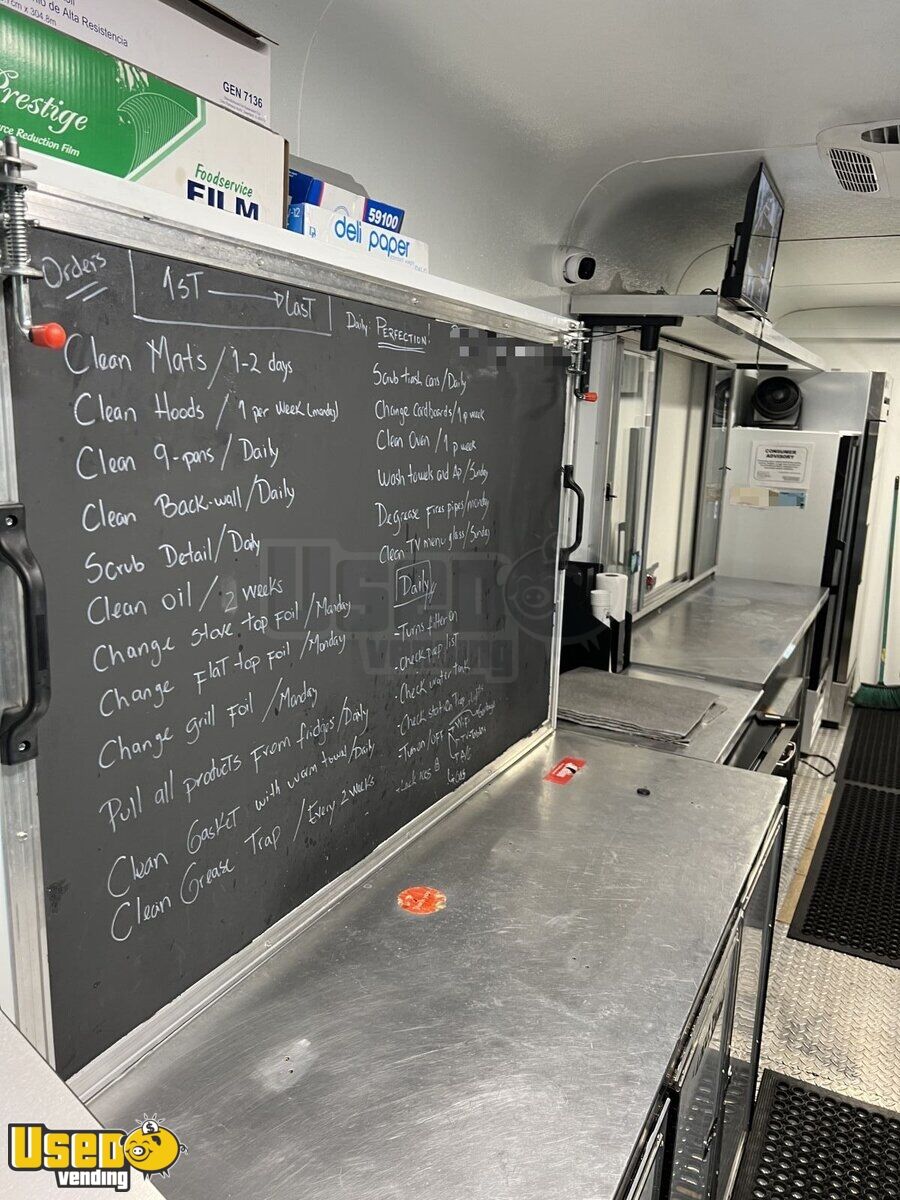 de Alta Resistencia
x 304.8m
GEN 7136
Prestige
Source Reduction Film
Foodservice
FILM
59100
deli paper
Orders
1ST → Last
Clean Mats / 1-2 days
Clean Hoods / 1 per week (monday)
Clean 9-pans / Daily
Clean Back-wall / Daily
Scrub Detail / Daily
Clean oil / 2 weeks
Change stove top foil / Monday
Change flat top foil / Monday
Change grill foil / Monday
Pull all products from fridges / Daily
Clean Gasket with warm towel / Daily
Clean Grease Trap / Every 2 weeks
Daily: PERFECTION!
Scrub trash cans / Daily
Change Cardboards / 1 p week
Clean Oven / 1 p week
Wash towels and Ap / Sunday
Degrease Fires pipes / monday
Clean TV menu glass / Sunday
Daily
- Turns filter on
- Check prep list
- Check water tank
- Check
- Turn on / OFF
A/C
Gas
CONSUMER
ADVISORY
Used
vending
Used
vending